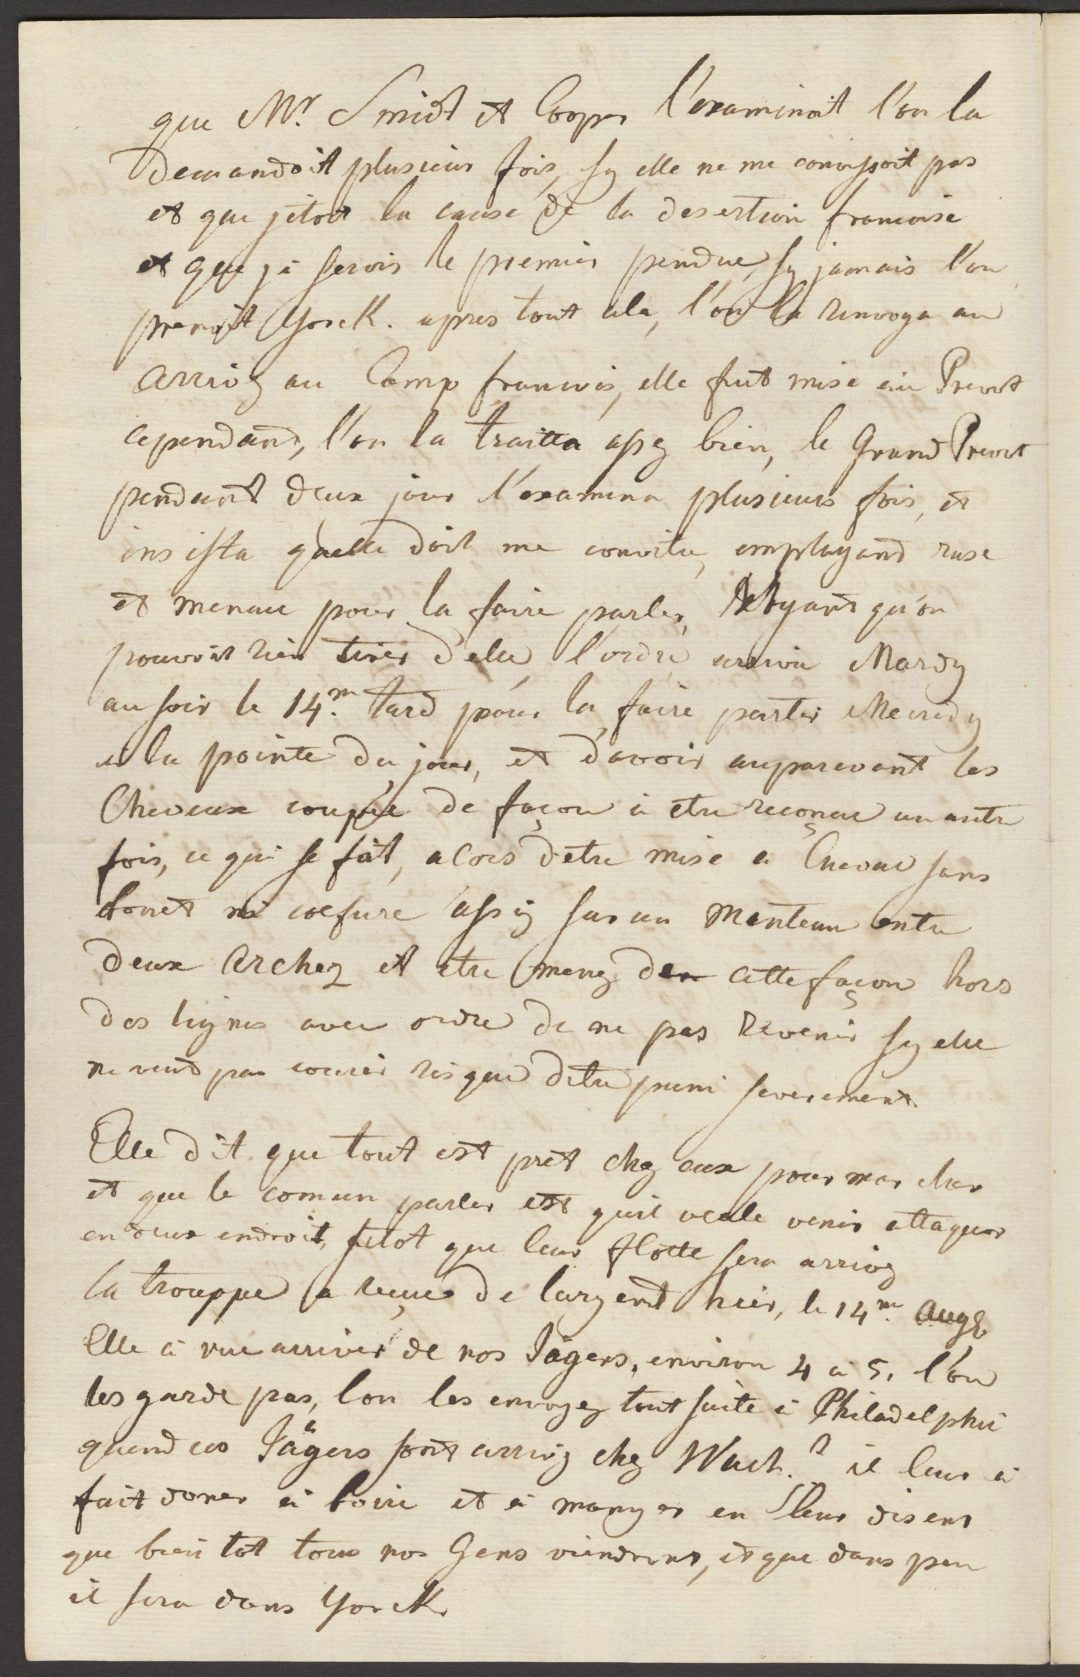 que Mr. Smidt et Cooper l'examinoit l'on la
demandoit plusieur fois, sy elle ne me conoissoit pas
et que jétoit la cause de la desertion francoise
et que je serois le premier pendue, sy jamais l'on
prenoit Yorck. apres tout cela, l'on la renvoya au
arrivez au Camp francois, elle fut mise au Prevot
cependand, l'on la traitta assez bien, le Grand Prevot
pendant deux jour l'examina plusieurs fois, et
insista quelle doit me conoitre, employand ruse
et menace pour la faire parler, voyant qu'on
pouvoit rien tirer d'elle l'ordre arriva Mardy
au soir le 14.m tard pour la faire partir Mecredy
a la pointe du jour, et d'avoir auparavant les
Cheveux coupée de façon à etre reconue un autre
fois, ce qui se fit, alors d'etre mise a Cheval sans
bonet ni coefure assis sur un Manteau entre
deux Archez et etre menez de cette façon hors
des lignes avec ordre de ne pas Revenir sy elle
ne veut pas courir risque d'etre puni severement.
Elle dit que tout est prêt chez eux pour marcher
et que le comun parler est quil veule venir attaquer
en deux endroit, sitot que leur flotte sera arrivez
la trouppe a reçue de l'argend hier, le 14.me Aug
Elle à vue arriver de nos Jägers, environ 4 a 5, l'on
les garde pas, l'on les envoyez tout suite à Philadelphie
quand ces Jägers sont arrivez chez Wash. il leur à
fait doner à boire et à manger en leur disent
que bien tot tous nos Gens viendront, et que dans peu
il sera dans Yorck.